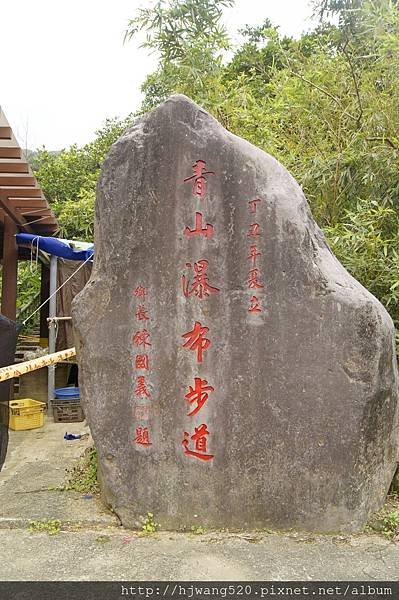 丁丑年夏立
青山瀑布步道
鄉長 陳國義 題
http://hjwang520.pixnet.net/album